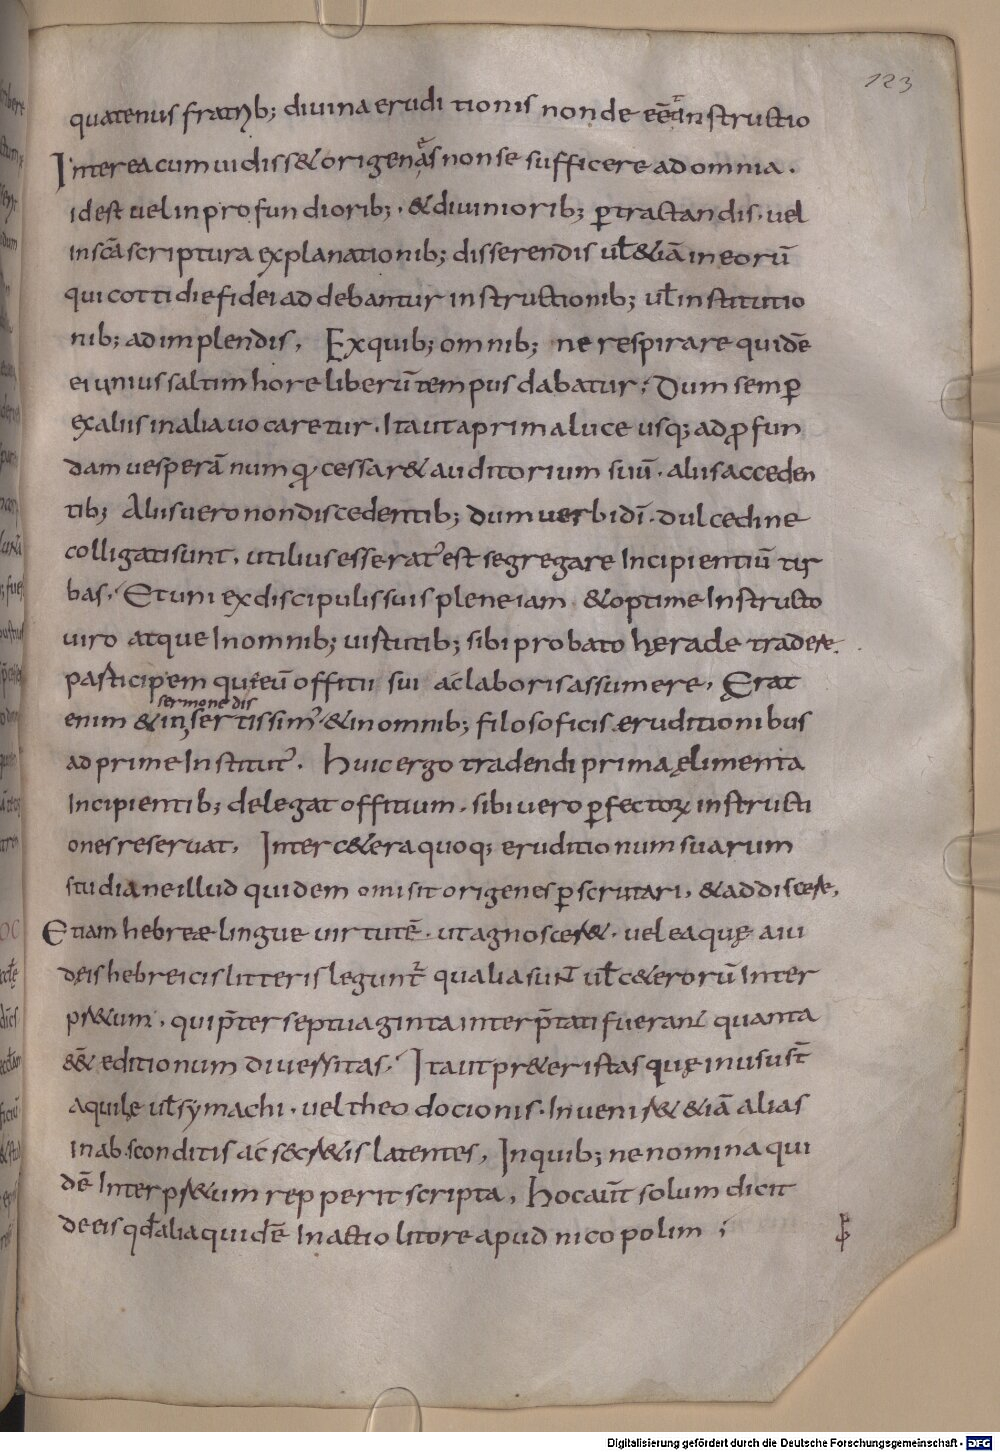 123
quatenus fratrib; divina eruditionis non deēē instructio
Interea cum uidiss& origenes non se sufficere ad omnia.
id est uel in profundiorib;. & diuiniorib; ꝑtractandis. uel
in scā scriptura explanationib; disserendis uƚ &iā in eorū
qui cottidie fidei addebantur instructionib; uƚ institutio
nib; ad implendis, Ex quib; omnib; ne respirare quidē
ei unius saltim hore liberū tempus dabatur; Dum semꝑ
ex aliis in alia uocaretur. Ita ut a prima luce usq; ad ꝓfun
dam uesperā numqͣ cessar& auditorium suū. aliis acceden
tib; Aliis uero non discedentib; dum uerbi dī. dulcedine
colligati sunt, utilius esse ratꝰ est segregare Incipientiū tur
bas; Et uni ex discipulis suis plene iam & optime Instructo
uiro atque In omnib; uirtutib; sibi probato heracle tradere.
participem qui eū offitii sui ac laboris assumere, Erat
sermone dis
enim & in sertissimꝰ. & in omnib; filosoficis eruditionibus
ad prime Institutꝰ. Huic ergo tradendi prima ęlimenta
Incipientib; delegat offitium. sibi uero ꝑfectoꝝ instructi
ones reseruat, Inter c&era quoq; eruditionum suarum
studia ne illud quidem omisit origenes ꝑscrutari, & addiscere,
Etiam hebreæ lingue uirtutē. ut agnoscer&. uel ea quę a iu
deis hebreicis litteris legunt᷑ qualia sunt uƚ c&erorū Inter
pr&um. qui p̄ter septuaginta interp̄tati fuerant quanta
&& editionum diuersitas; Ita ut pr&er istas quę in usu sūt
aquilę uƚ symachi. uel theodocionis. Inuenir& &iā alias
in absconditis ac secr&is latentes, In quib; ne nomina qui
dē Interpr&um repperit scripta, Hoc aūt solum dicit
de eis qđ alia quidē In actio litore apud nicopolim ;